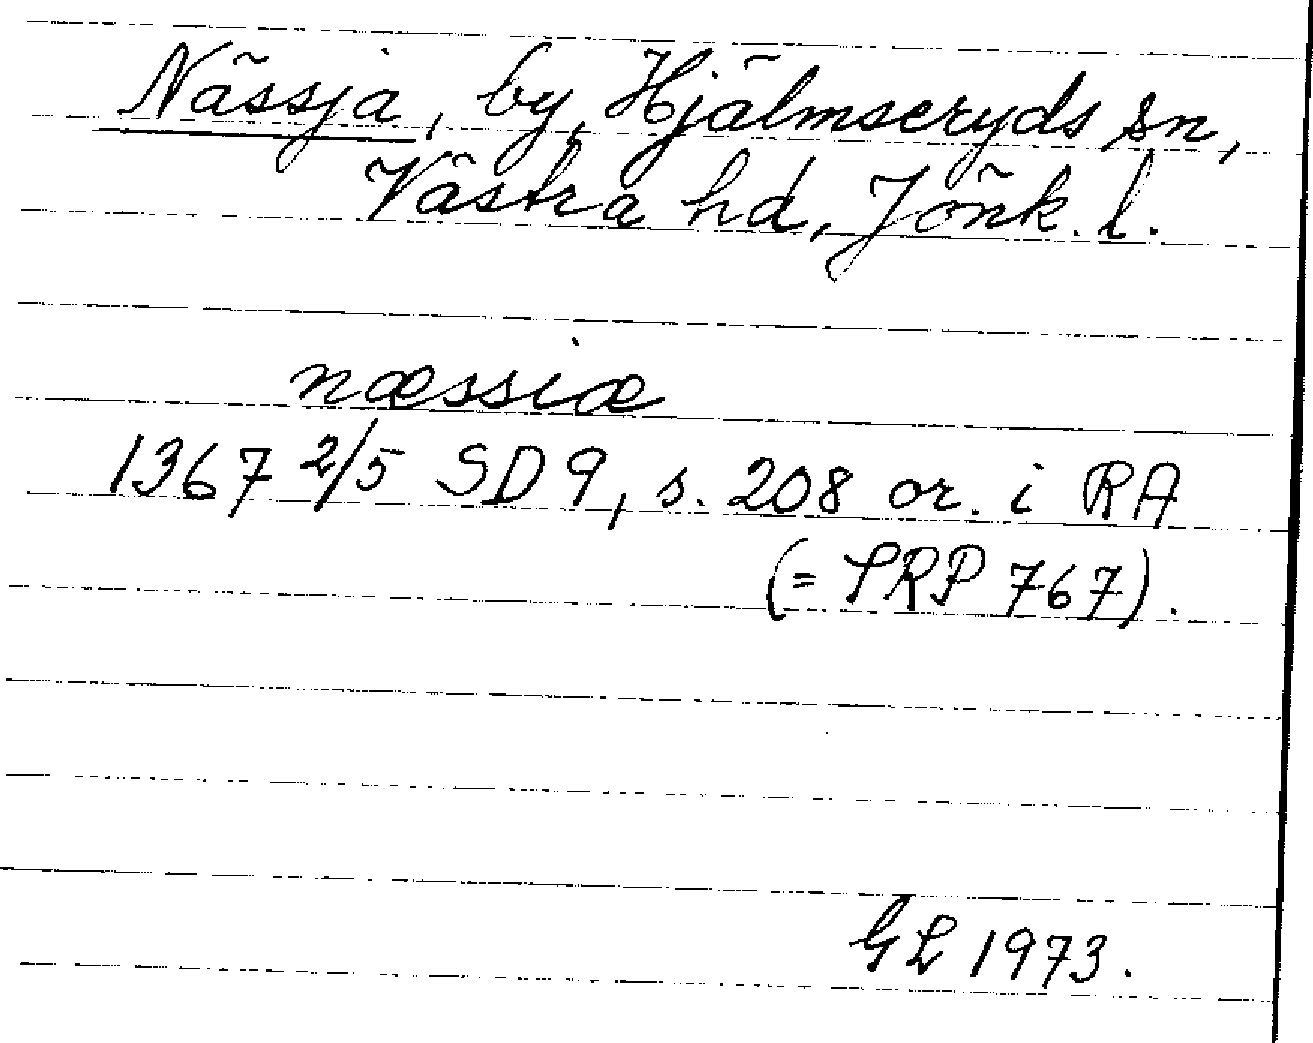 Nässja, by, Hjälmseryds sn,
Västra hd, Jönk. l.
næssiæ
1367 2/5 SD 9, s. 208 or. i RA
(= SRP 767).
GL 1973.